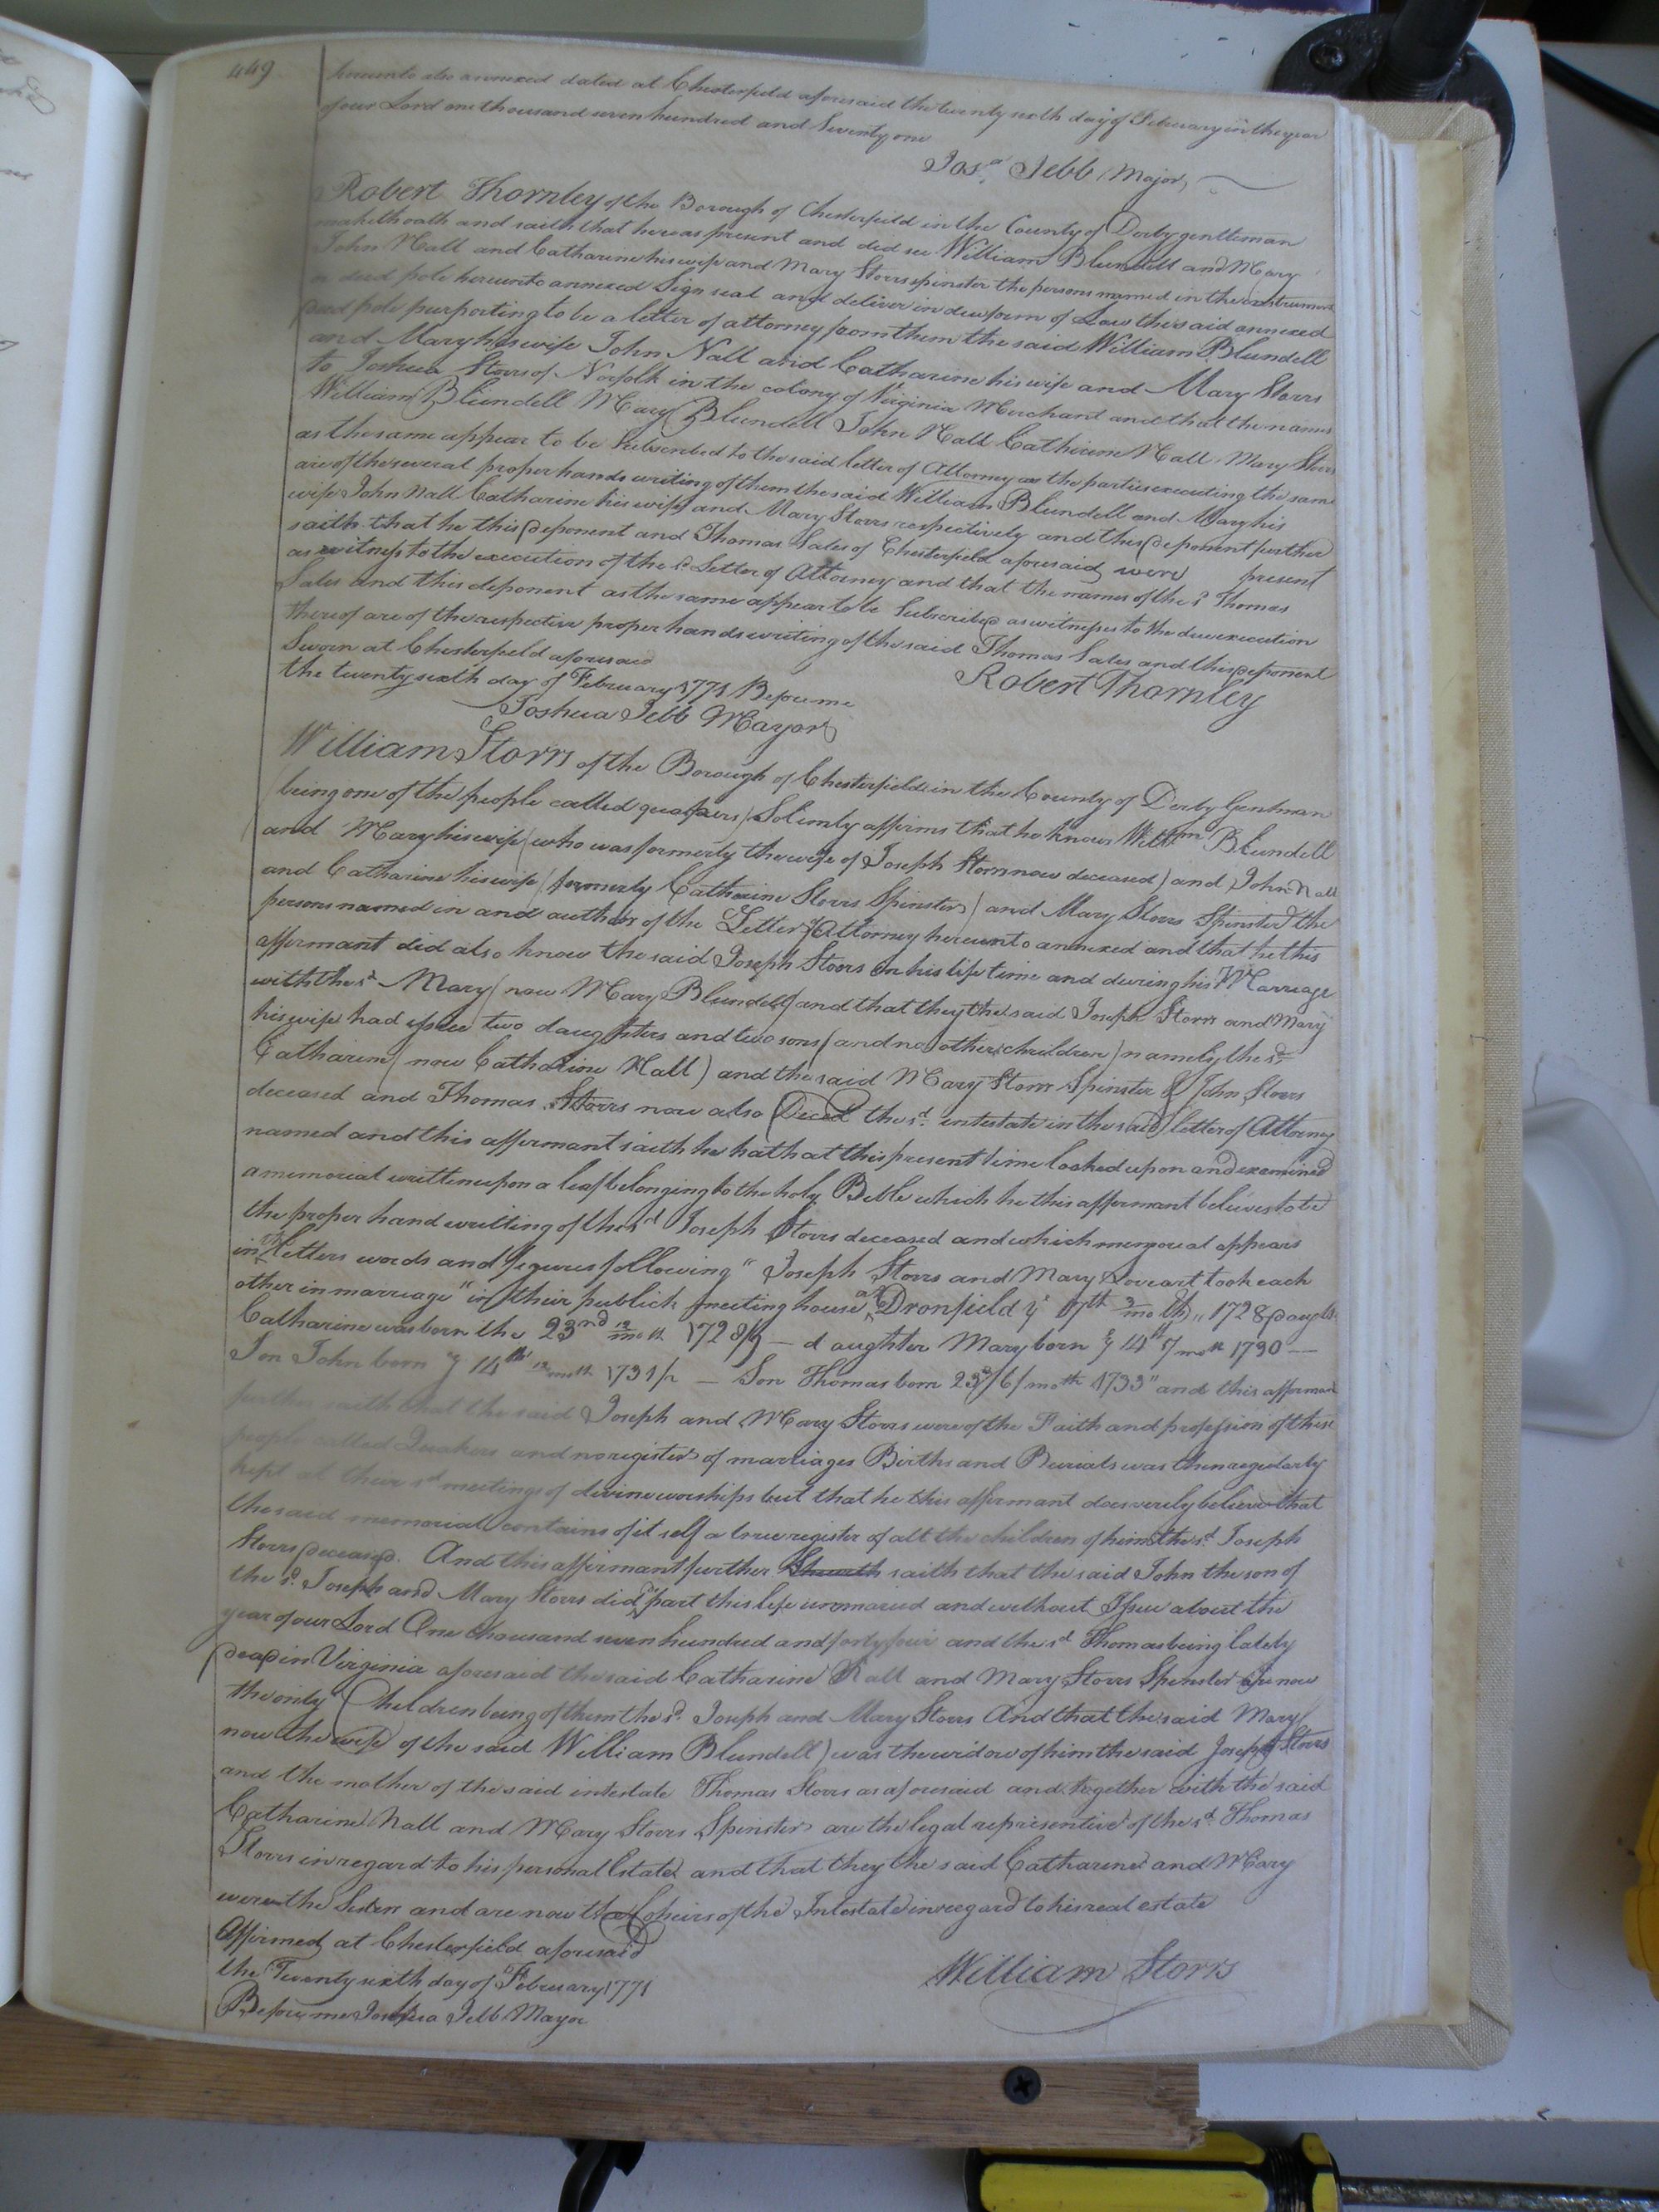 449
hereunto also annexed dated at Chesterfield aforesaid the twenty sixth day of February in the year
of our Lord one thousand seven hundred and Seventy one
Josa. Jebb Major
Robert Thornley of the Borough of Chesterfield in the County of Derby gentleman
maketh oath and saith that he was present and did see William Blundell and Mary
John Nall and Catharine his wife and Mary Storrs spinster the persons named in the instrument
or deed pole hereunto annexed Sign seal and deliver in due form of Law the said annexed
deed pole purporting to be a letter of attorney from them the said William Blundell
and Mary his wife John Nall and Catharine his wife and Mary Storrs
to Joshua Storrs of Norfolk in the colony of Virginia Merchant and that the names
William Blundell Mary Blundell John Nall Catharine Nall Mary Storrs
as the same appear to be Subscribed to the said letter of Attorney as the parties executing the same
are of the several proper hands writing of them the said William Blundell and Mary his
wife John Nall Catharine his wife and Mary Storrs respectively and this deponent further
saith that he this deponent and Thomas Sales of Chesterfield aforesaid were present
as witness to the execution of the sd Letter of Attorney and that the names of the sd Thomas
Sales and this deponent as the same appear to be Subscribed as witnesses to the due execution
thereof are of the respective proper hands writing of the said Thomas Sales and this deponent
Sworn at Chesterfield aforesaid
the twenty sixth day of February 1771 Before me
Robert Thornley
Joshua Jebb Mayor
William Storrs of the Borough of Chesterfield in the County of Derby Gentman
(being one of the people called quakers) Solemly affirms that he knows Willm Blundell
and Mary his wife (who was formerly the wife of Joseph Storrs now deceased) and John Nall
and Catharine his wife (formerly Catharine Storrs Spinster) and Mary Storrs Spinster the
persons named in and authors of the Letter of Attorney hereunto annexed and that he this
affirmant did also know the said Joseph Storrs in his life time and during his Marriage
with the sd Mary (now Mary Blundell) and that they the said Joseph Storrs and Mary
his wife had issue two daughters and two sons (and no other children) namely the sd
Catharine (now Catharine Nall) and the said Mary Storrs Spinster & John Storrs
deceased and Thomas Storrs now also Deced the sd. intestate in the said letter of Attorney
named and this affirmant saith he hath at this present time looked upon and examined
a memorial written upon a leaf belonging to the holy Bible which he this affirmant believes to be
the proper hand writing of the sd Joseph Storrs deceased and which memorial appears
in the letters words and figures following " Joseph Storrs and Mary took each
other in marriage " in their publick meeting house at Dronfield ye 17th 3/mo th,, 1728 daughtr
Catharine was born the 23nd 12/mo th 1728/9 — daughter Mary born ye 14th 7 moth 1730 —
Son John born ye 14th 12 moth 1731/2 — Son Thomas born 23d/6/moth 1733" and this affirmant
further saith that the said Joseph and Mary Storrs were of the Faith and profession of these
people called Quakers and no register of marriages Births and Burials was then regularly
kept at their sd meetings of divine worships but that he this affirmant does verily believe that
the said memorial contains of it self a true register of all the children of him the sd. Joseph
Storrs deceased. And this affirmant further saith that the said John the son of
the sd. Joseph and Mary Storrs did part this life unmaried and without Issue about the
year of our Lord One thousand seven hundred and forty four and the sd Thomas being lately
dead in Virginia aforesaid the said Catharine Nall and Mary Storrs Spinster are now
the only Children being of them the sd. Joseph and Mary Storrs And that the said Mary (
now the wife of the said William Blundell) was the widow of him the said Joseph Storrs
and the mother of the said intestate Thomas Storrs as aforesaid and together with the said
Catharine Nall and Mary Storrs Spinster are the legal representive of the sd Thomas
Storrs in regard to his personal Estate and that they the said Catharine and Mary
were the Sisters and are now the Coheirs of the Intestate in regard to his real estate
Affirmed at Chesterfield aforesaid
the Twenty sixth day of February 1771
Before me Joshua Jebb Mayor
William Storrs